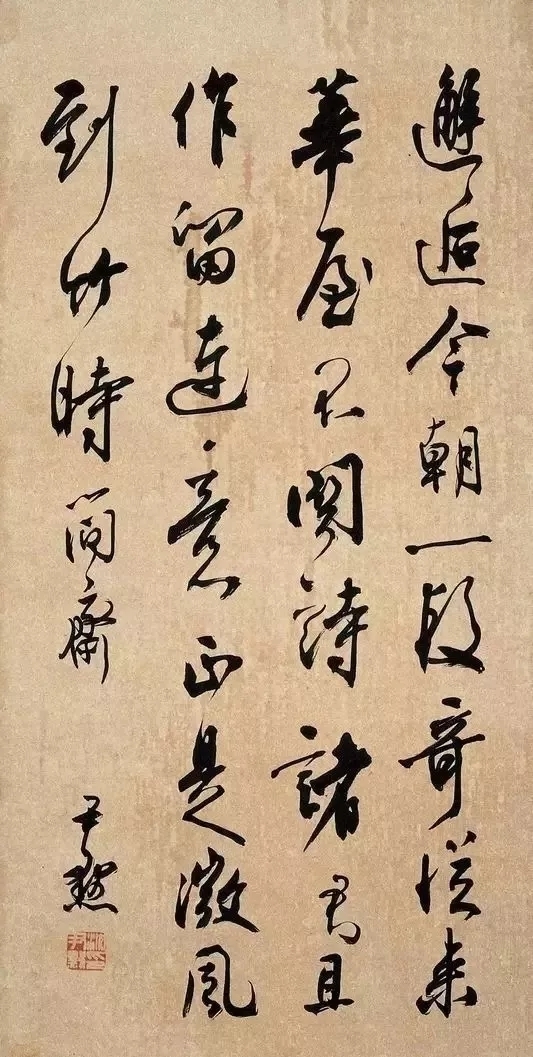 邂逅今朝一段奇從来
華屋不關詩諸君且
作留連意正是微風
到竹時 簡齋
尹默